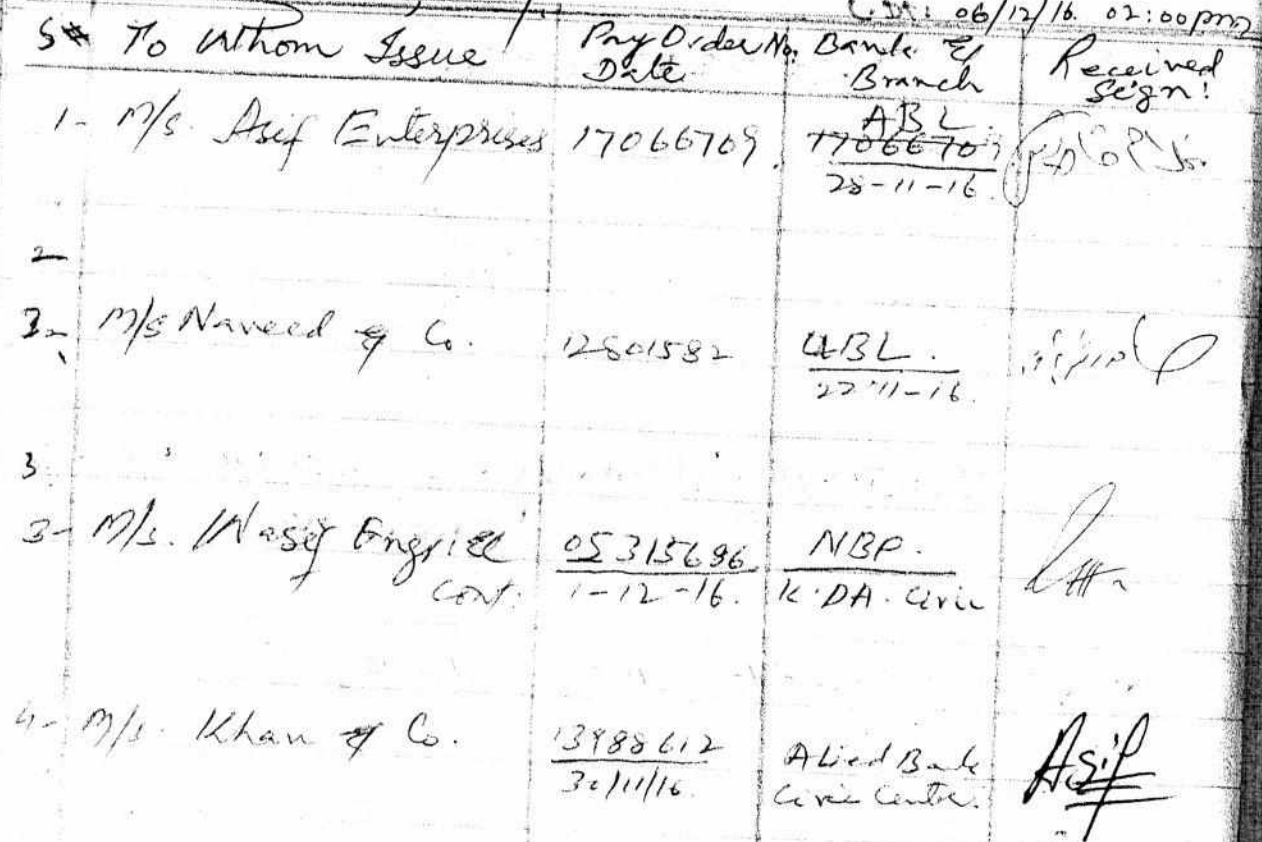 06/12/16. 02:00pm
S# To Whom Issue Pay Order No. Bank &
Date Branch Received Sign:
1- M/s. Asif Enterprises 17066709. ABL
17066709
28-11-16.
2-
3- M/s Naveed & Co. 12801582 UBL.
22-11-16.
3.
3- M/s. Wasif 05315696 NBP.
Cont. 1-12-16. K.DA. Civic
4- M/s. Khan & Co. 13988612 Alied Bank
30/11/16. Civic Centre. Asif